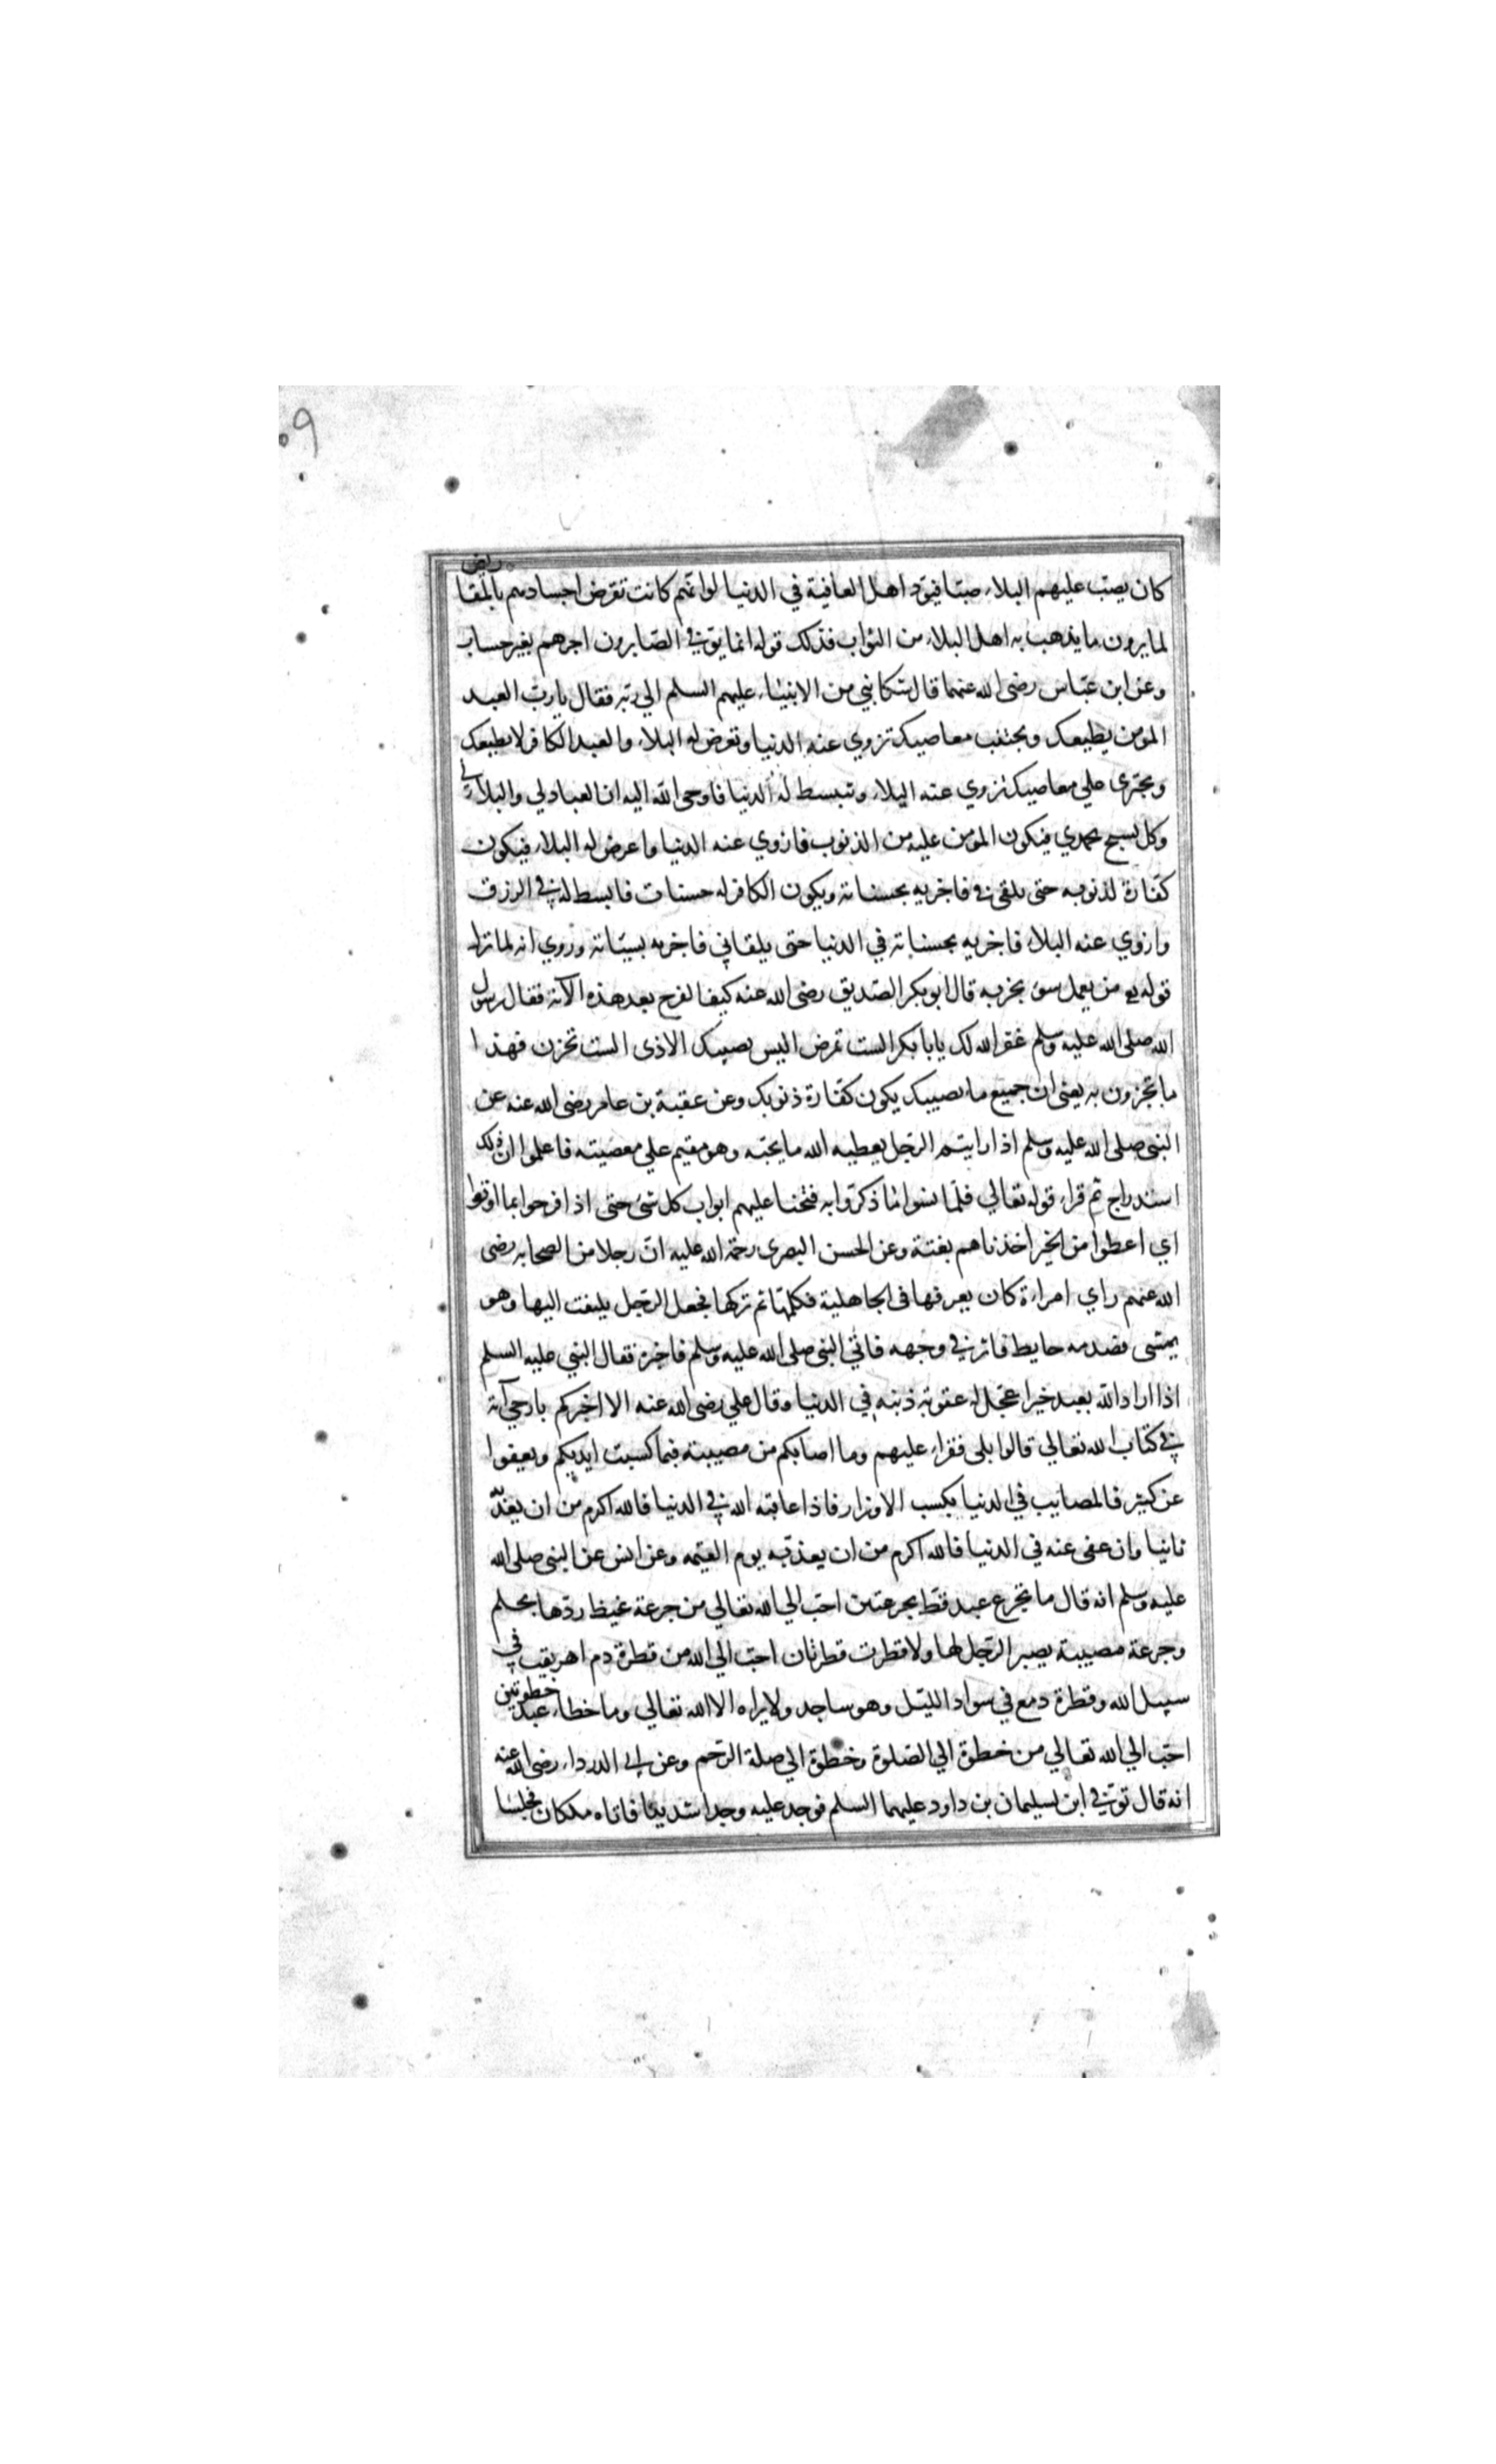 ٩
كان يصبّ عليهم البلاء صبّا فيودّ اهل العافية في الدنيا لو انّهم كانت تقرض اجسادهم بالمقاريض
لما يرون ما يذهب به اهل البلاء من الثواب فذلك قوله انما يوفي الصّابرون اجرهم بغير حساب
وعن ابن عبّاس رضى الله عنهما قال شكا نبي من الانبياء عليهم السلم الي ربّه فقال يا ربّ العبد
المومن يطيعك ويجتنب معاصيك تزوي عنه الدنيا وتعرض له البلاء والعبد الكافر لا يطيعك
ويجترى علي معاصيك تزوي عنه البلاء وتبسط له الدنيا فاوحى الله اليه ان العباد لي والبلاء لي
وكل يسبح بحمدي فيكون المؤمن عليه من الذنوب فازوي عنه الدنيا واعرض له البلاء فيكون
كفّارة لذنوبه حتى يلقى ني فاجزيه بحسناته ويكون الكافر له حسنات فابسط له في الرزق
وازوي عنه البلاء فاجزيه بحسناته في الدنيا حتى يلقاني فاجزيه بسيّئاته وروي انه لما نزل
قوله يع من يعمل سوء يجز به قال ابو بكر الصّديق رضى الله عنه كيف الفرح بعد هذه الآية فقال رسول
الله صلى الله عليه وسلم غفر الله لك يابا بكر الست تمرض اليس يصيبك الاذى الست تحزن فهذا
ما تجزون به يعنى ان جميع ما يصيبك يكون كفّارة ذنوبك وعن عقبة بن عامر رضى الله عنه عن
النبى صلى الله عليه وسلم اذا رايتم الرّجل يعطيه الله ما يحبّه وهو مقيم علي معصيته فاعلموا ان ذلك
استدراج ثم قراء قوله تعالي فلمّا نسوا ما ذكّروا به فتحنا عليهم ابواب كل شئ حتى اذا فرحوا بما اوتوا
اي اعطوا من الخير اخذناهم بغتة وعن الحسن البصرى رحمة الله عليه انّ رجلا من الصحابه رضى
الله عنهم راي امراءة كان يعرفها فى الجاهلية فكلمها ثم تركها فجعل الرّجل يلتفت اليها وهو
يمشى فصدمه حايط فاثر في وجهه فاتي النبى صلى الله عليه وسلم فاخبره فقال النبي عليه السلم
اذا اراد الله بعبد خيرا عجّل له عقوبة ذنبه في الدنيا وقال علي رضى الله عنه الا اخبركم بارجي آية
في كتاب الله تعالي قالوا بلى فقراء عليهم وما اصابكم من مصيبة فبما كسبت ايديكم ويعفوا
عن كثير فالمصايب في الدنيا بكسب الاوزار فاذا عاقبه الله في الدنيا فالله اكرم من ان يعذّبه
ثانيا وان عفى عنه في الدنيا فالله اكرم من ان يعذّبه يوم القيمه وعن انس عن النبى صلى الله
عليه وسلم انه قال ما تجرع عبد قط بجرعتين احبّ الي الله تعالي من جرعة غيظ ردّها بحلم
وجرعة مصيبة يصبر الرّجل لها ولا قطرت قطرتان احبّ الي الله من قطرة دم اهريقت في
سبيل الله وقطرة دمع في سواد الليّل وهو ساجد ولا يراه الا الله تعالي وما خطاء عبد خطوتين
احبّ الي الله تعالي من خطوة الي الصّلوة وخطوة الي صلة الرّحم وعن ابي الدرداء رضى الله عنه
انه قال توفي ابن لسليمان بن داود عليهما السلم فوجد عليه وجدا شديدا فاتاه ملكان فجلسا